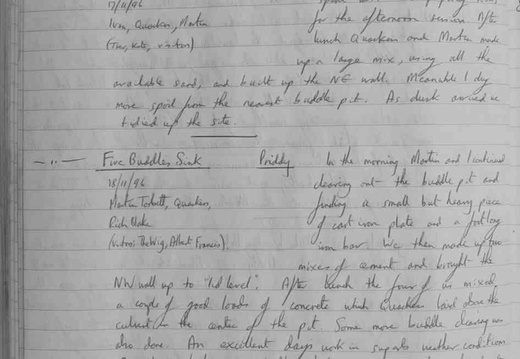 17/11/96
Ivan, Quackers, Martin for the afternoon session. After
(Tav, Kate, visitors) lunch Quackers and Martin made
up a large mix, using all the
available sand, and built up the NE wall. Meanwhile I dug
more spoil from the nearest buddle pit. As dusk arrived we
tidied up the site.
— " — Five Buddles Sink Priddy In the morning Martin and I continued
18/11/96 clearing out the buddle pit and
Martin Torbett, Quackers, finding a small but heavy piece
Rich Blake of cast iron plate and a foot long
(visitors: The Wig, Albert Francis). iron bar. We then made up two
mixes of cement and brought the
NW wall up to 'lid level'. After lunch the four of us mixed
a couple of good loads of concrete which Quackers laid above the
culvert in the centre of the pit. Some more buddle clearing was
also done. An excellent days work in superb weather conditions